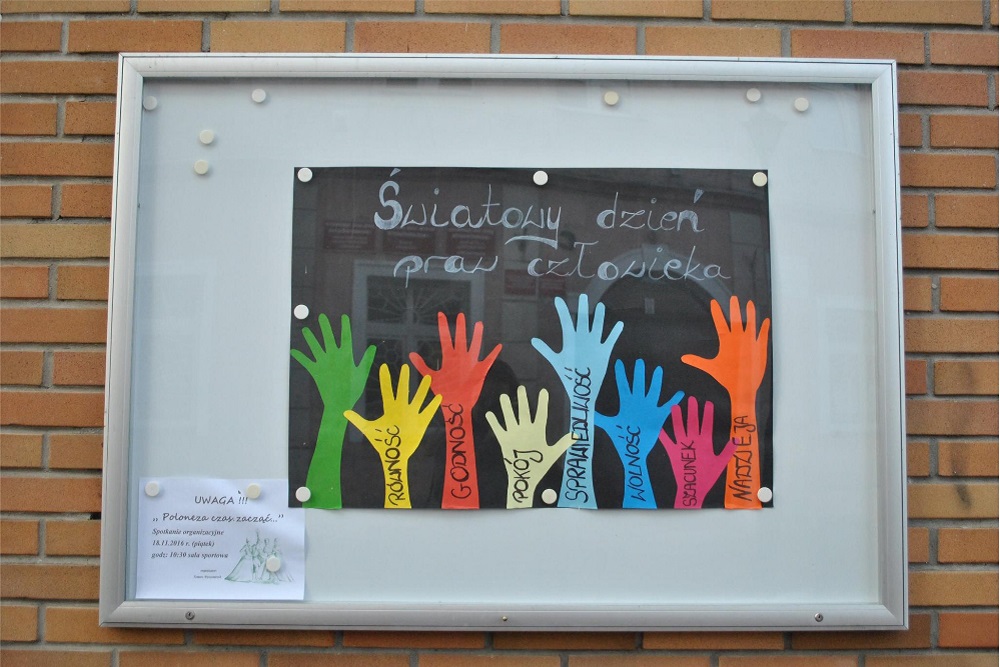 Światowy dzień
praw człowieka
RÓWNOŚĆ
GODNOŚĆ
POKÓJ
SPRAWIEDLIWOŚĆ
WOLNOŚĆ
SZACUNEK
NADZIEJA
UWAGA !!!
„ Poloneza czas zacząć..."
Spotkanie organizacyjne
18.11.2016 r. (piątek)
godz: 10:30 sala sportowa